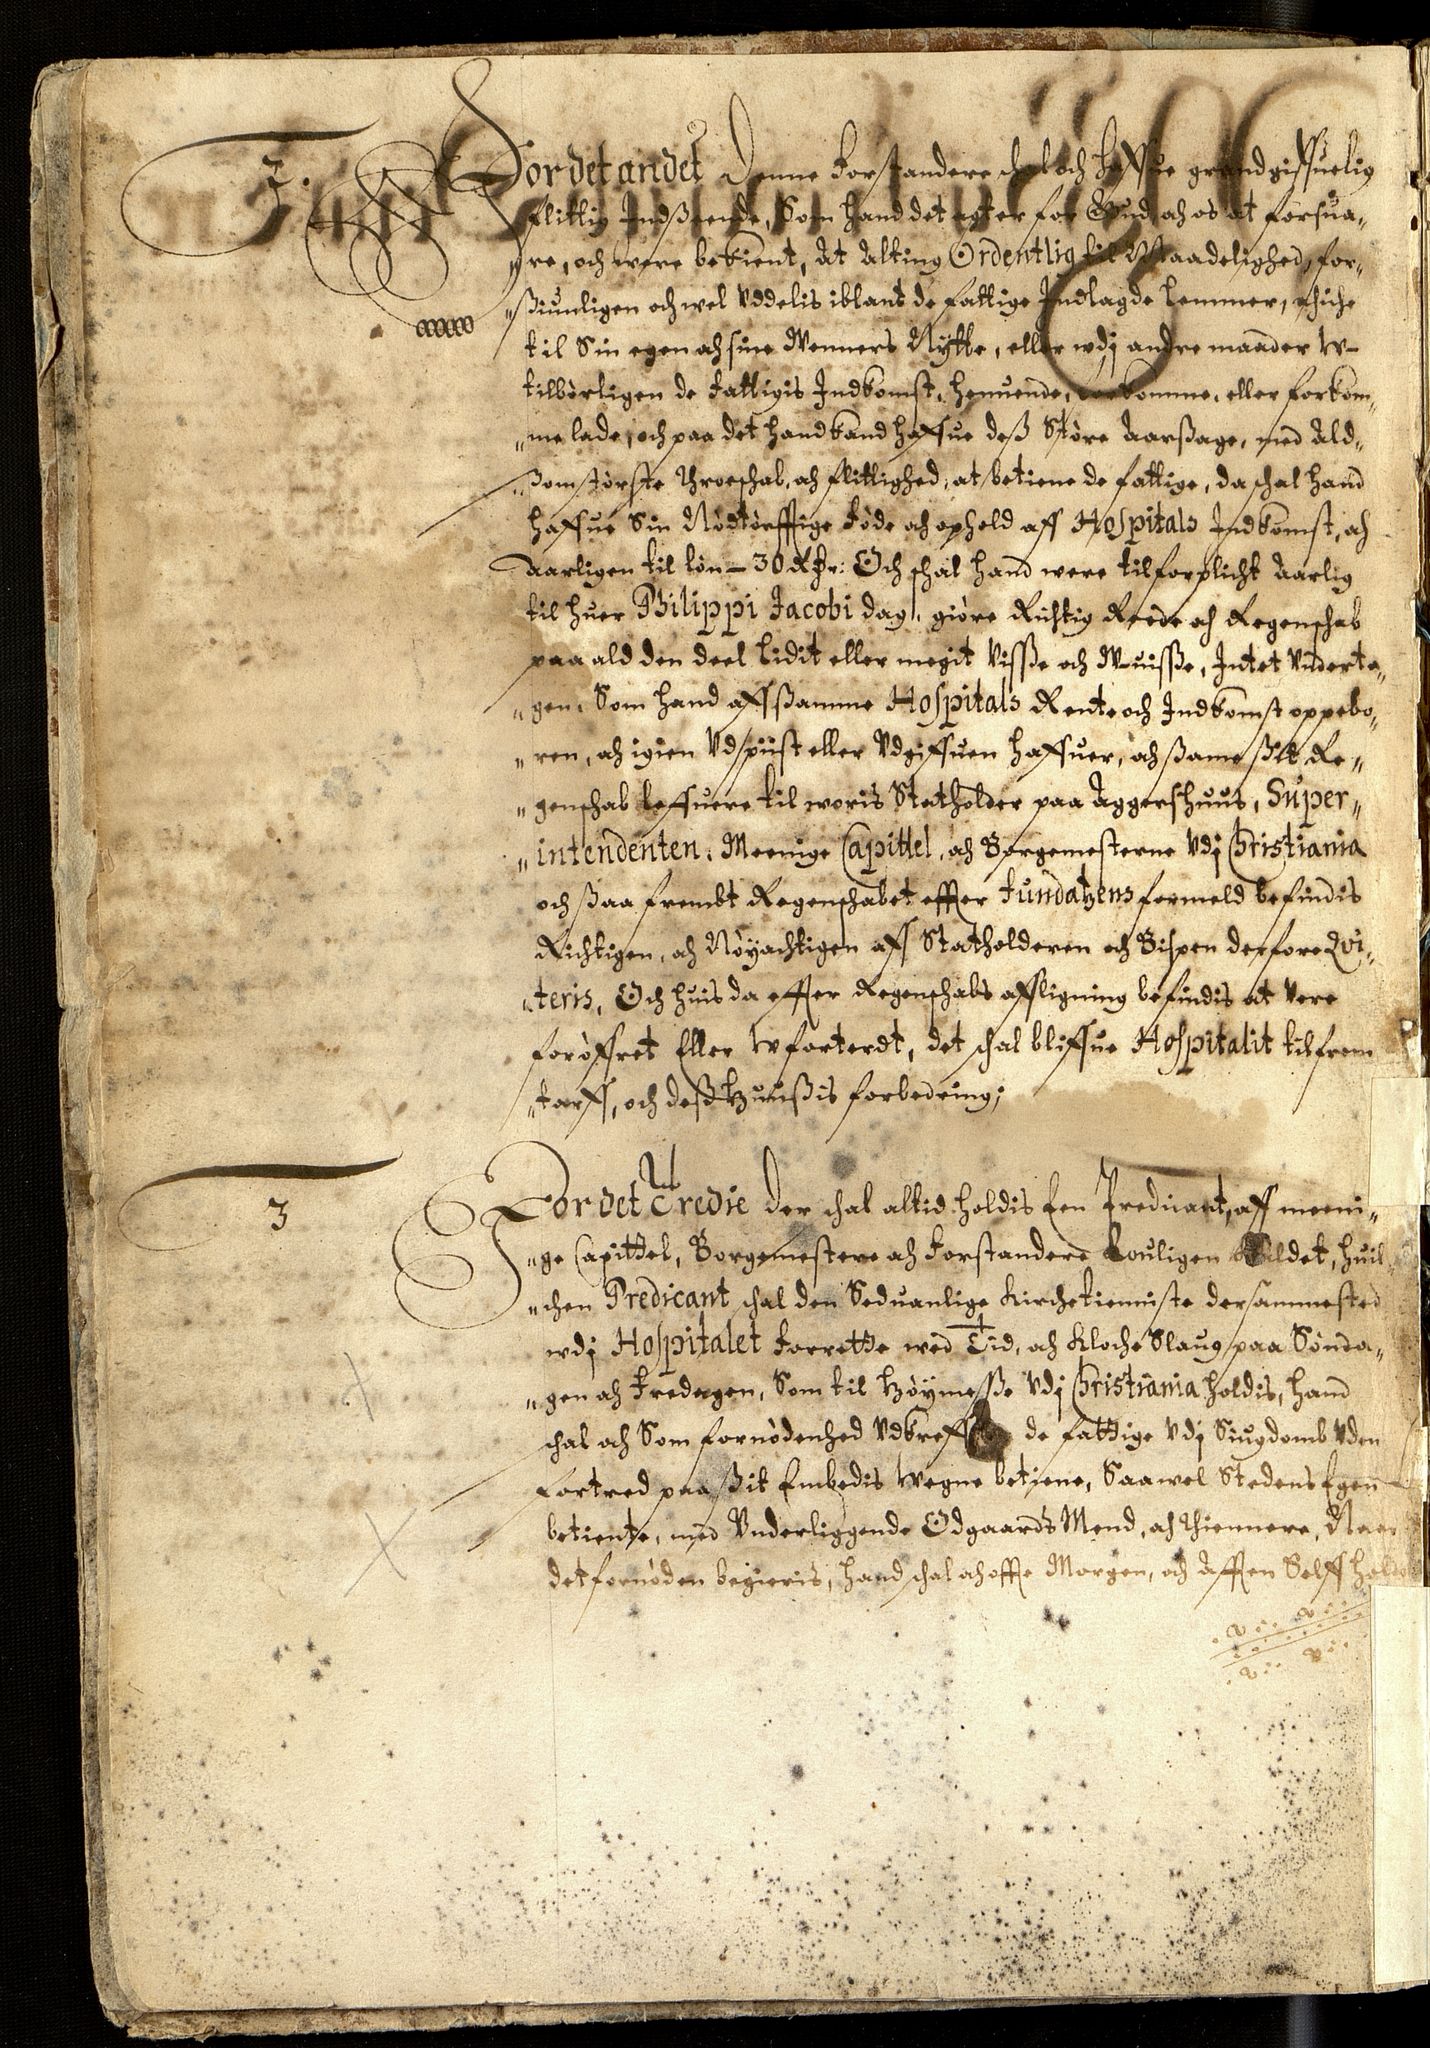 2.
For det andet Denne Forstandere schal och haffue grandgiffuelig
flittig Indseende, Som hand det agter for Gud och os at forsua„
„re, och were bekient, At Alting Ordentlig til Maadelighed, for„
„siunligen och wel Uddelis iblant de fattige Indlagde Lemmer, iche
til Sin egen och sine Wenners Nytte, eller wdj andre maader W-
tilbørligen de Fattigis Indkomst, henuende, eller forkom„
„me lade, och paa det hand kand haffue deß Støre Aarßage, med Ald„
„ßomstørste throeschab, och flittighed, at betiene de fattige, da schal hand
haffue Sin Nødtørfftige Føde och ophold aff Hospitals Indkomst, och
Aarligen til Løn – 30 Rdr: Och schal hand were tilforplicht Aarlig
til huer Philippi Jacobi dag, giøre Richtig Reede och Regenschab
paa ald den deel Lidit eller megit Visse och W-uisse, Intet Vnderta„
„gen, Som hand aff ßamme Hospitals Rente och Indkomst oppebo„
„ren, och igien Vdspiist eller Vdgiffuen haffuer, och ßame ßit Re„
„genschab leffuere til woris Statholder paa Aggershuus, Super„
„intendenten, Meenige Capittel, och Borgemesterne Vdj Christiania
och ßaa frembt Regenschabet effter Fundatzens formeld befindis
Richtigen, och Nøyachtigen aff Statholderen och Bispen derfore Qvi„
„teris, Och huis da effter Regenschabs affligning befindis at Vere
forøffret Eller Wforterdt, det schal bliffue Hospitalit til frem
„tarff, och deß Huußis forbedring;
3
For det Tredie Der schal altid holdis Een Predicant, aff meeni„
„ge Capittel, Borgemestere och Forstandere Louligen Kaldet, huil„
„chen Predicant schal den Seduanlige Kirchetienniste dersammested
wdj Hospitalet Forrette wed Tid, och Kloche Slaug paa Sønda„
„gen och Fredagen, Som til Høymeße Vdj Christiania holdis, hand
schal och Som fornødenhed Vdkreff de fattige Vdj Siugdomb Vden
Fortred paa ßit Embedis Wegne betiene, Saawel Stedens Egen
betiente, med Vnderliggende Ødgaards Mend, och thiennere, Naar
det fornøden begieris, hand schal och offte Morgen, och Afften Selff holde